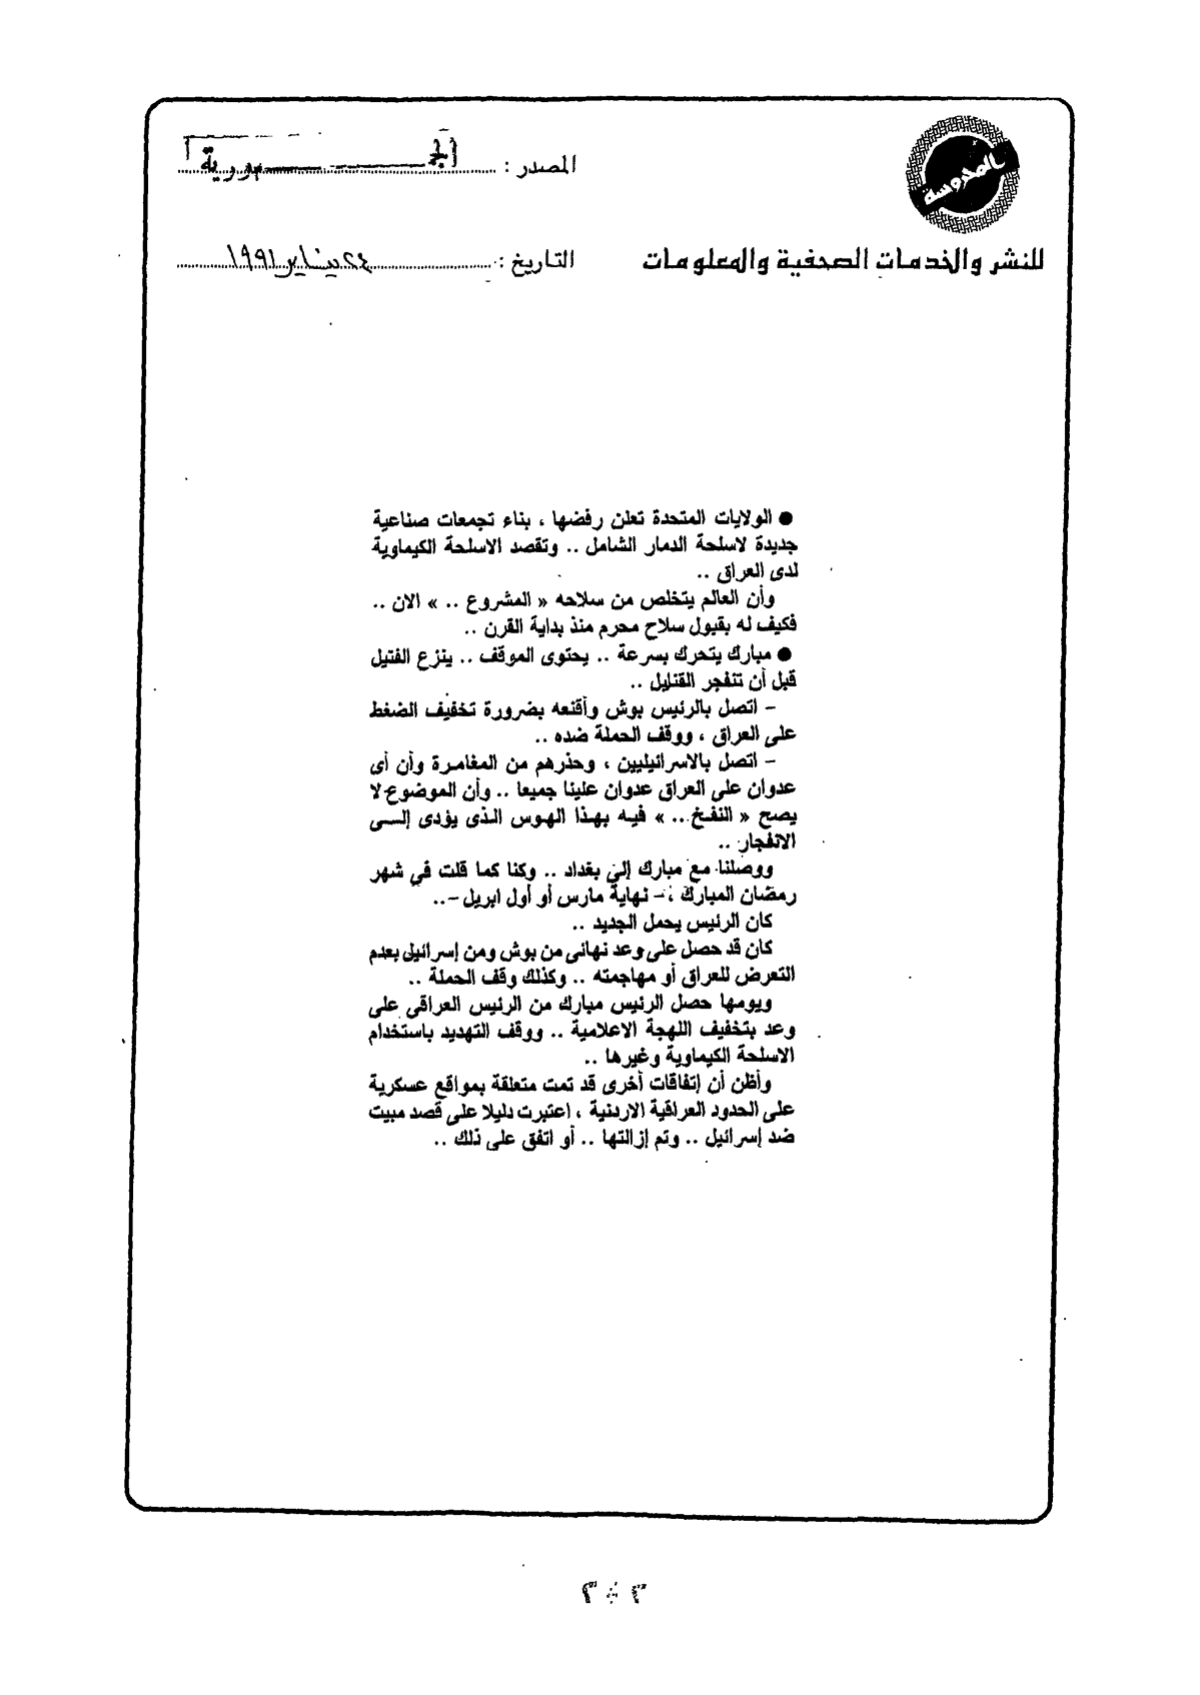 المصدر : الجمهورية
بالمحروسة
للنشر والخدمات الصحفية والمعلومات
التاريخ : ٢٤ يناير ١٩٩١
● الولايات المتحدة تعلن رفضها ، بناء تجمعات صناعية
جديدة لاسلحة الدمار الشامل .. وتقصد الاسلحة الكيماوية
لدى العراق ..
وأن العالم يتخلص من سلاحه « المشروع .. » الان ..
فكيف له بقبول سلاح محرم منذ بداية القرن ..
● مبارك يتحرك بسرعة .. يحتوى الموقف .. ينزع الفتيل
قبل أن تنفجر القنابل ..
- اتصل بالرئيس بوش وأقنعه بضرورة تخفيف الضغط
على العراق ، ووقف الحملة ضده ..
- اتصل بالاسرائيليين ، وحذرهم من المغامرة وأن أى
عدوان على العراق عدوان علينا جميعا .. وأن الموضوع لا
يصح « النفخ .. » فيه بهذا الهوس الذى يؤدى إلى
الانفجار ..
ووصلنا مع مبارك إلى بغداد .. وكنا كما قلت في شهر
رمضان المبارك ، - نهاية مارس أو أول ابريل -..
كان الرئيس يحمل الجديد ..
كان قد حصل على وعد نهائى من بوش ومن إسرائيل بعدم
التعرض للعراق أو مهاجمته .. وكذلك وقف الحملة ..
ويومها حصل الرئيس مبارك من الرئيس العراقى على
وعد بتخفيف اللهجة الاعلامية .. ووقف التهديد باستخدام
الاسلحة الكيماوية وغيرها ..
وأظن أن إتفاقات أخرى قد تمت متعلقة بمواقع عسكرية
على الحدود العراقية الاردنية ، اعتبرت دليلا على قصد مبيت
ضد إسرائيل .. وتم إزالتها .. أو اتفق على ذلك ..